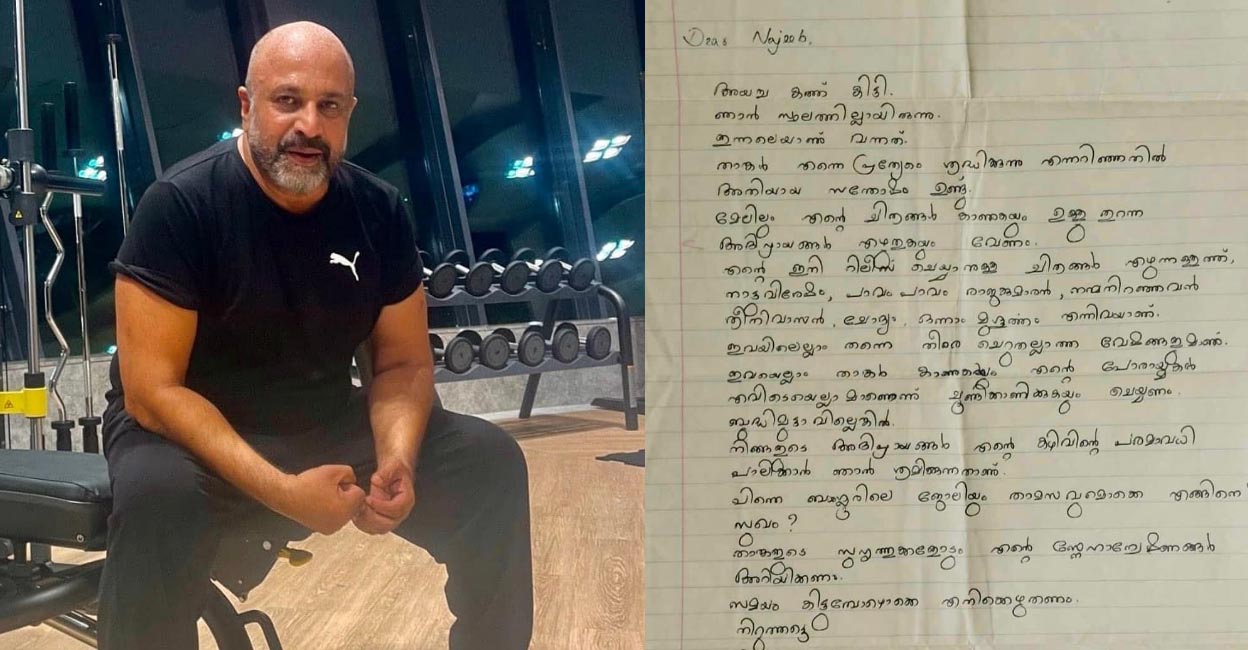 Dear Najeeb,
അയച്ച കത്ത് കിട്ടി.
ഞാൻ സ്ഥലത്തില്ലായിരുന്നു.
ഇന്നലെയാണ് വന്നത്.
താങ്കൾ എന്നെ പ്രത്യേകം ശ്രദ്ധിക്കുന്നു എന്നറിഞ്ഞതിൽ
അതിയായ സന്തോഷം ഉണ്ട്.
മേലിലും എന്റെ ചിത്രങ്ങൾ കാണുകയും ഉള്ളു തുറന്ന
അഭിപ്രായങ്ങൾ എഴുതുകയും വേണം.
എന്റെ ഇനി റിലീസ് ചെയ്യാനുള്ള ചിത്രങ്ങൾ എഴുന്നള്ളത്ത്,
നാട്ടുവിശേഷം, പാവം പാവം രാജകുമാരൻ, നന്മനിറഞ്ഞവൻ
ശ്രീനിവാസൻ, ചോദ്യം, ഒന്നാം മുഹൂർത്തം എന്നിവയാണ്.
ഇവയിലെല്ലാം തന്നെ തീരെ ചെറുതല്ലാത്ത വേഷങ്ങളുമാണ്.
ഇവയെല്ലാം താങ്കൾ കാണുകയും എന്റെ പോരായ്മകൾ
എവിടെയെല്ലാമാണെന്ന് ചൂണ്ടിക്കാണിക്കുകയും ചെയ്യണം.
ബുദ്ധിമുട്ടാവില്ലെങ്കിൽ.
നിങ്ങളുടെ അഭിപ്രായങ്ങൾ എന്റെ കഴിവിന്റെ പരമാവധി
പാലിക്കാൻ ഞാൻ ശ്രമിക്കുന്നതാണ്.
പിന്നെ ബാംഗ്ലൂരിലെ ജോലിയും താമസവുമൊക്കെ എങ്ങിനെ?
സുഖം?
താങ്കളുടെ സുഹൃത്തുക്കളോടും എന്റെ സ്നേഹാന്വേഷണങ്ങൾ
അറിയിക്കണം.
സമയം കിട്ടുമ്പോഴൊക്കെ എനിക്കെഴുതണം.
നിറുത്തട്ടെ